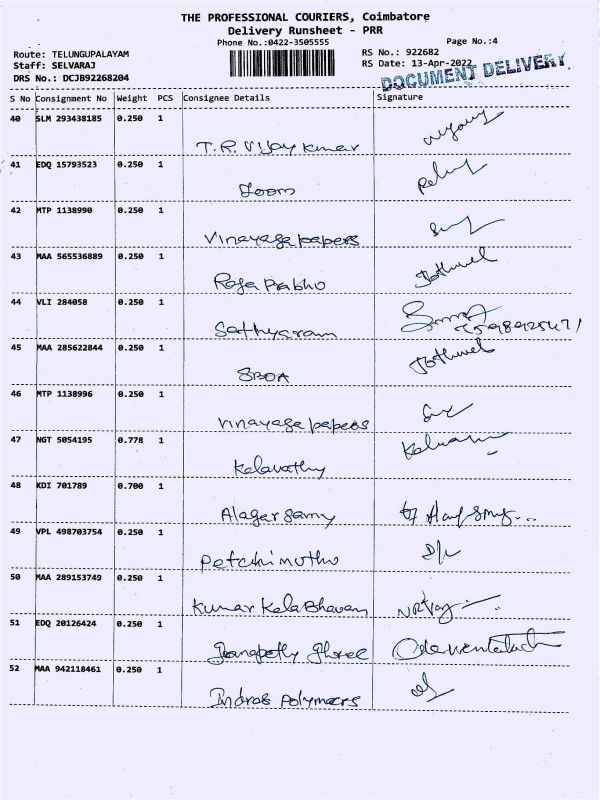 THE PROFESSIONAL COURIERS, Coimbatore
Delivery Runsheet - PRR
Phone No.:0422-3505555
Page No.:4
Route: TELUNGUPALAYAM
RS No.: 922682
Staff: SELVARAJ
RS Date: 13-Apr-2022
DRS No.: DCJB92268204
DOCUMENT DELIVERY
S No Consignment No Weight PCS Consignee Details Signature
40 SLM 293438185 0.250 1
T.R. Vijay Kumar
41 EDQ 15793523 0.250 1
42 MTP 1138990 0.250 1
Vinayaga papers
43 MAA 565536889 0.250 1
Raja Prabho
44 VLI 284058 0.250 1
Sathyaram
45 MAA 285622844 0.250 1
SBOA
46 MTP 1138996 0.250 1
vinayaga papers
47 NGT 5054195 0.778 1
Kalavathy
48 KDI 701789 0.700 1
Alagarsamy
49 VPL 498703754 0.250 1
Petchimutho
50 MAA 289153749 0.250 1
Kumar Kala Bhavan
51 EDQ 20126424 0.250 1
52 MAA 942118461 0.250 1
Indras Polymers